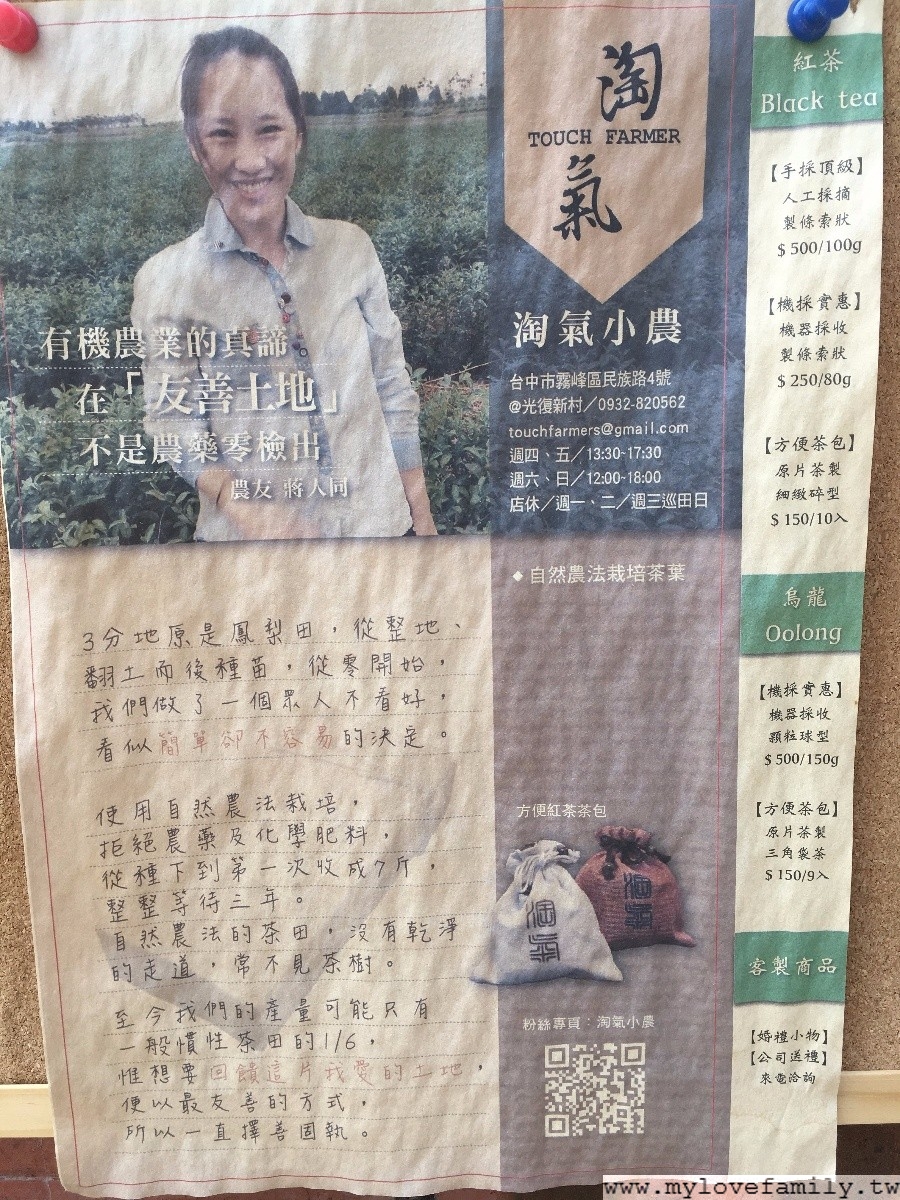 有機農業的真諦
在「友善土地」
不是農藥零檢出
農友 蔣人同
淘
TOUCH FARMER
氣
淘氣小農
台中市霧峰區民族路4號
@光復新村／0932-820562
touchfarmers@gmail.com
週四、五／13:30-17:30
週六、日／12:00-18:00
店休／週一、二／週三巡田日
3分地原是鳳梨田，從整地、
翻土而後種苗，從零開始，
我們做了一個眾人不看好，
看似簡單卻不容易的決定。
使用自然農法栽培，
拒絕農藥及化學肥料，
從種下到第一次收成7斤，
整整等待三年。
自然農法的茶田，沒有乾淨
的走道，常不見茶樹。
至今我們的產量可能只有
一般慣性茶田的1/6，
惟想要回饋這片我愛的土地，
便以最友善的方式，
所以一直擇善固執。
◆自然農法栽培茶葉
方便紅茶茶包
淘氣
淘氣
粉絲專頁：淘氣小農
紅茶
Black tea
【手採頂級】
人工採摘
製條索狀
$500/100g
【機採實惠】
機器採收
製條索狀
$250/80g
【方便茶包】
原片茶製
細緻碎型
$150/10入
烏龍
Oolong
【機採實惠】
機器採收
顆粒球型
$500/150g
【方便茶包】
原片茶製
三角袋茶
$150/9入
客製商品
【婚禮小物】
【公司送禮】
來電洽詢
www.mylovefamily.tw